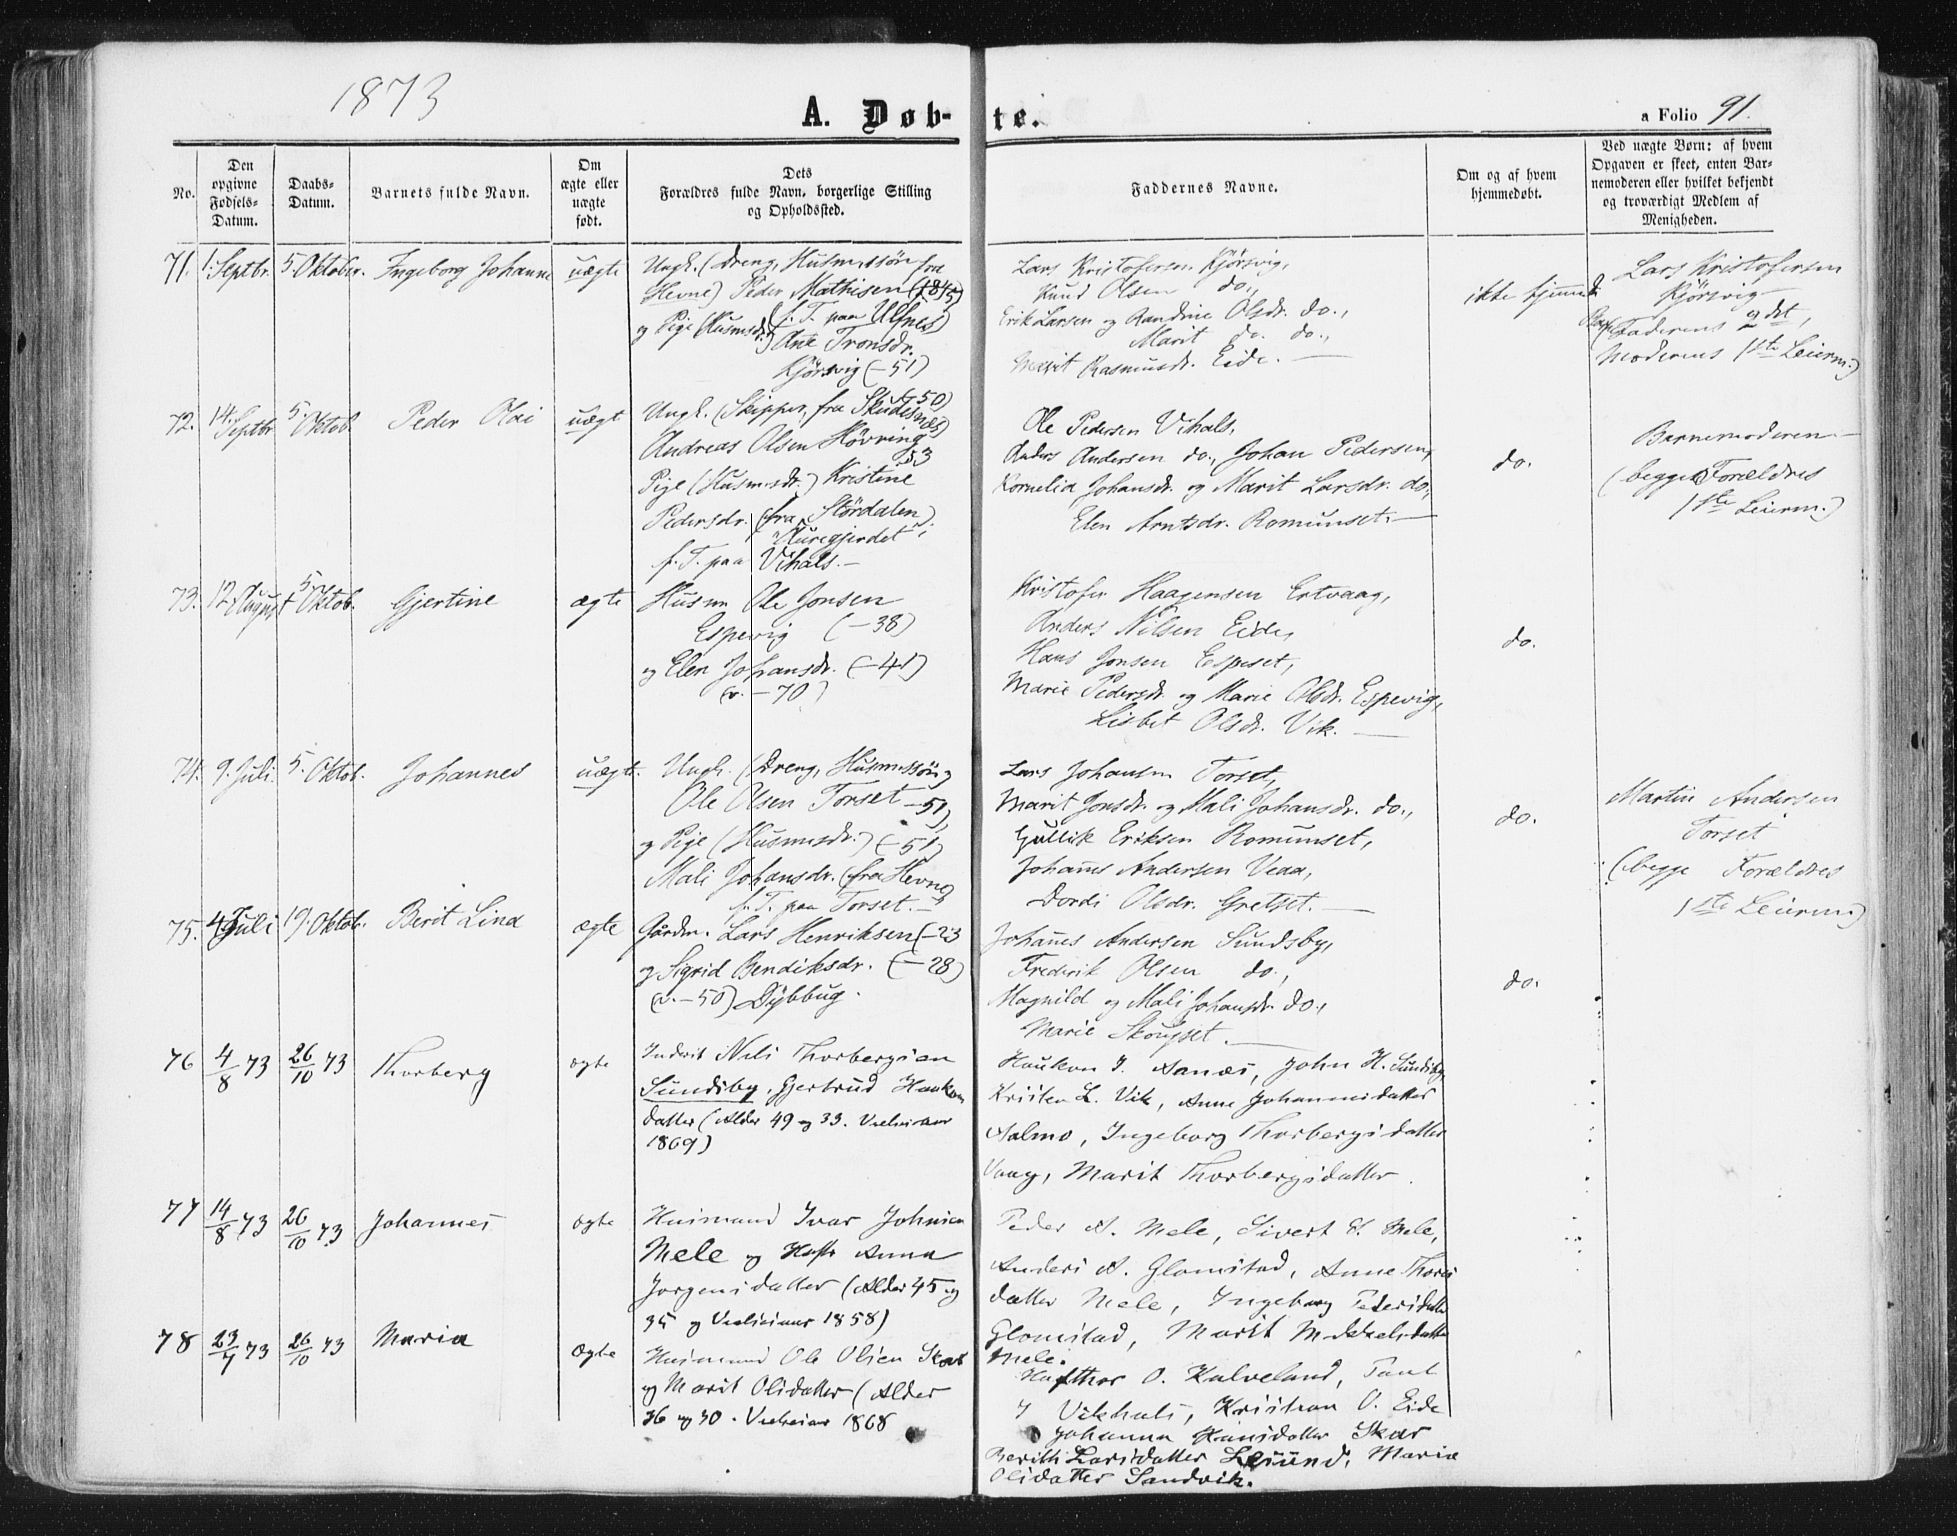 1873
A. Døbte.
a Folio 91.
No.
Den opgivne Fødsels-Datum.
Daabs-Datum.
Barnets fulde Navn.
Om ægte eller uægte født.
Dets Forældres fulde Navn, borgerlige Stilling og Opholdssted.
Faddernes Navne.
Om og af hvem hjemmedøbt.
Ved uægte Børn: af hvem Opgaven er skeet, enten Barnemoderen eller hvilket bekjendt og troværdigt Medlem af Menigheden.
71. 1. Septbr. 5. Oktober. Ingeborg Johanne uægte
Ungk. (Dreng, Husmssøn fra
Hevne) Peder Mathisen (1845)
(f. T. paa Ulfnes)
og Pige (Husmsdr.) Ane Tronsdr.
Kjørsvig (-51)
Lars Kristofersen Kjørsvig,
Knud Olsen do.,
Erik Larsen og Randine Olsdr. do.,
Marit do. do.,
Marit Rasmusdr. Eide.
ikke hjemmed.
Lars Kristofersen
Kjørsvig
(Faderens 2det,
Moderens 1ste Leierm.)
72. 14. Septbr 5. Oktob. Peder Olai uægt
Ungk. (Skipper, fra Skudesnæs) (-50)
Andreas Olsen Høvring
53
Pige (Husmsdr.) Kristine
Pedersdr. (fra Størdalen)
f. T. paa Vihals.
Ole Pedersen Vihals,
Anders Andersen do., Johan Pedersen,
Kornelia Johansdr. og Marit Larsdr. do.,
Elen Arntsdr. Romunset.
do.
Barnemoderen
(begge Forældres
1ste Leierm.)
73. 12. August 5. Oktob. Gjertine ægte
Husm Ole Jonsen
Espevig (-38)
og Elen Johansdr. (-41)
(v. -70)
Kristofer Haagensen Ertvaag,
Anders Nilsen Eide,
Hans Jonsen Espeset,
Marie Pedersdr. og Marie Olsdr. Espevig,
Lisbet Olsdr. Vik.
do.
74. 9. Juli. 5. Oktob. Johannes uægt.
Ungk. (Dreng, Husmssøn)
Ole Olsen Torset -51)
og Pige (Husmsdr.) (-51)
Mali Johansdr. (fra Hevne)
f. T. paa Torset.
Lars Johansen Torset,
Marit Jonsdr. og Mali Johansdr. do.,
Gullik Eriksen Romunset,
Johanes Andersen Veaa,
Dordi Olsdr. Gretset.
do.
Martin Andersen
Torset
(begge Forældres
1ste Leierm.)
75. 4 Juli 19. Oktob. Berit Lina ægte
Gårdm. Lars Henriksen (-23
og Sigrid Bendiksdr. (-28)
(v. -50) Dybbug.
Johanes Andersen Sundsby,
Frederik Olsen do.,
Magnild og Mali Johansdr. do.,
Marie Skougset.
do.
76 4/8 73 26/10 73 Thorberg ægte
Inderst Nils Thorbergsen
Sundsby, Gjertrud Haakon
datter (Alder 49 og 33. Vielsesaar
1869)
Haukon J. Aanæs, John H. Sundsby,
Kristen L. Vik, Anne Johannesdatter
Aalmo, Ingeborg Thorbergsdatter
Vaag, Marit Thorbergsdatter.
77 14/8 73 26/10 73 Johannes ægte
Husmand Ivar Johnsen
Mele og Hustr Anna
Jørgensdatter (Alder 45 og
35 og Vielsesaar 1858)
Peder A. Mele, Sivert S. Mele,
Anders A. Glomstad, Anne Thores
datter Mele, Ingeborg Pedersdatter
Glomstad, Marit Mikkelsdatter
Mele.
78 23/7 73 26/10 73 Maria ægte
Husmand Ole Olsen Skar
og Marit Olsdatter (Alder
36 og 30. Vielsesaar 1868
O. Kalveland,
Vikhals, Kristian O. Eide
Johanna Hansdatter Skar
Berith Larsdatter Lesund, Maria
Olsdatter Sandvik.